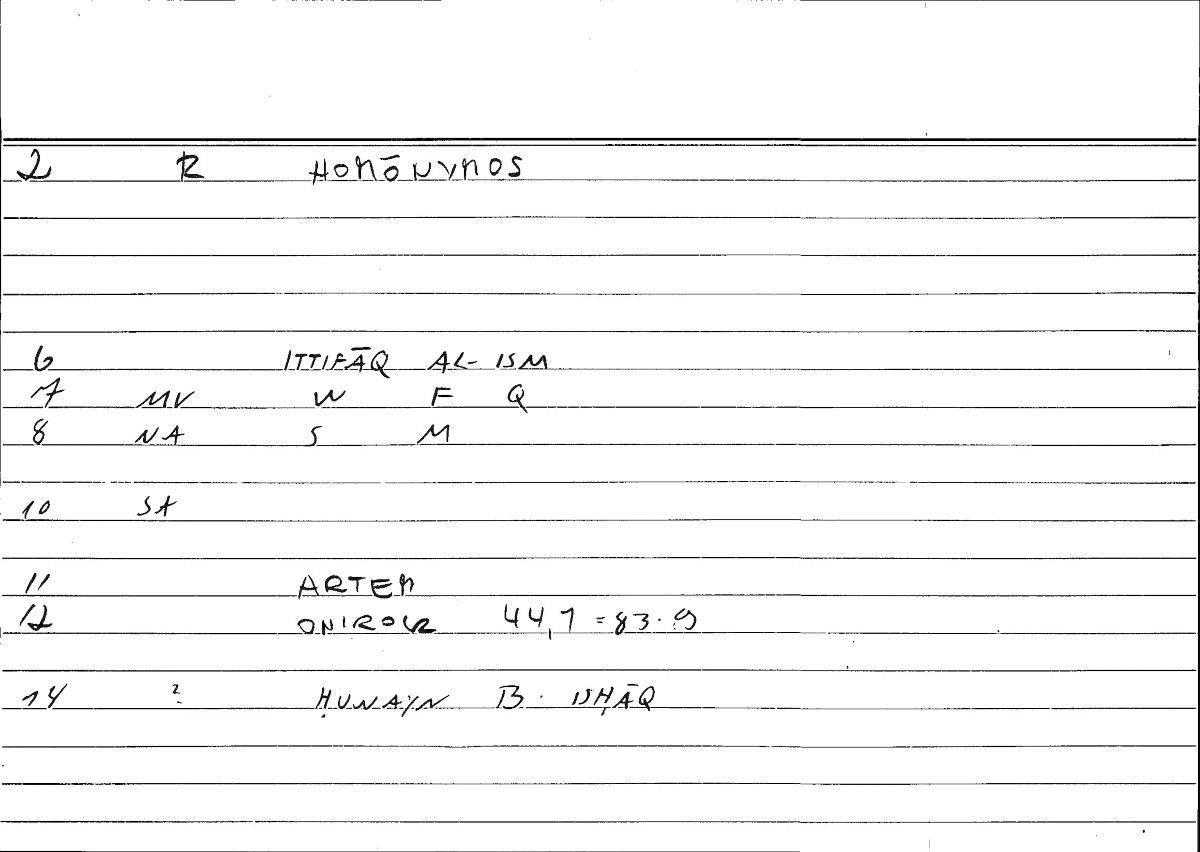 2 R HOMŌNYMOS
6 ITTIFĀQ AL-ISM
7 MV W F Q
8 NA S M
10 SA
11 ARTEM
12 ONIROCR 44,1 = 83.9
14 ? ḤUNAYN B. ISḤĀQ